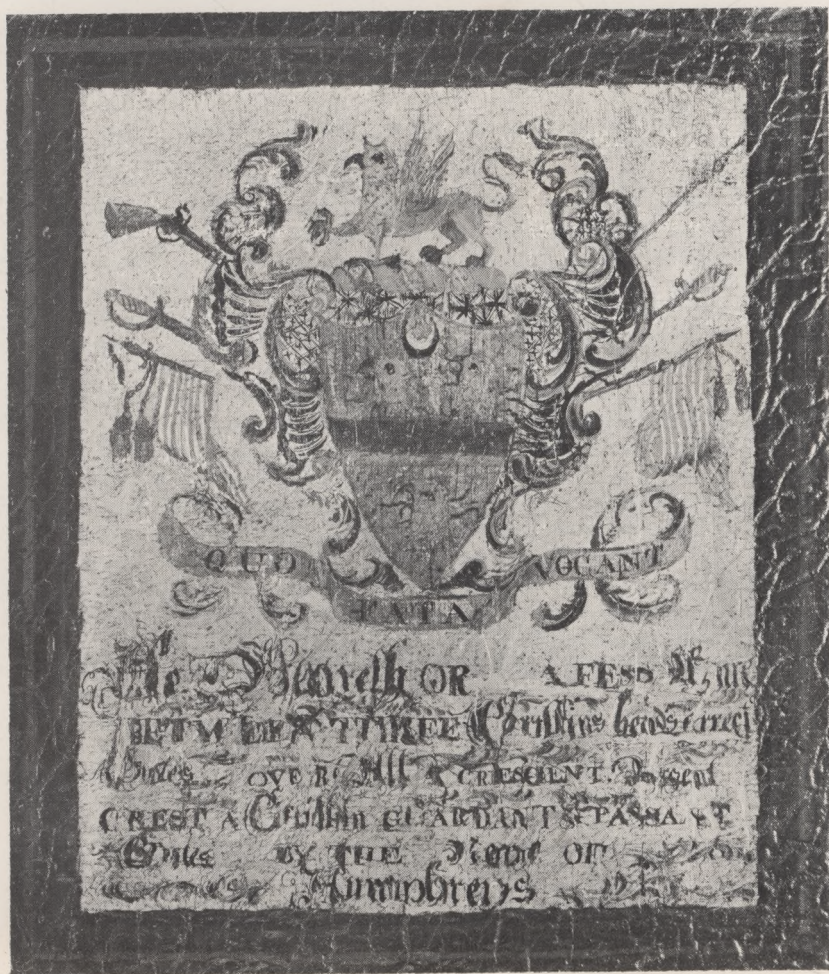 QUO VOCANT
FATA
He Beareth OR A FESS Azure
BETWEEN THREE Griffins heads erased
Gules OVER All A CRESCENT
CREST A Griffin GUARDANT & PASSANT
Gules BY THE Name OF
Humphreys